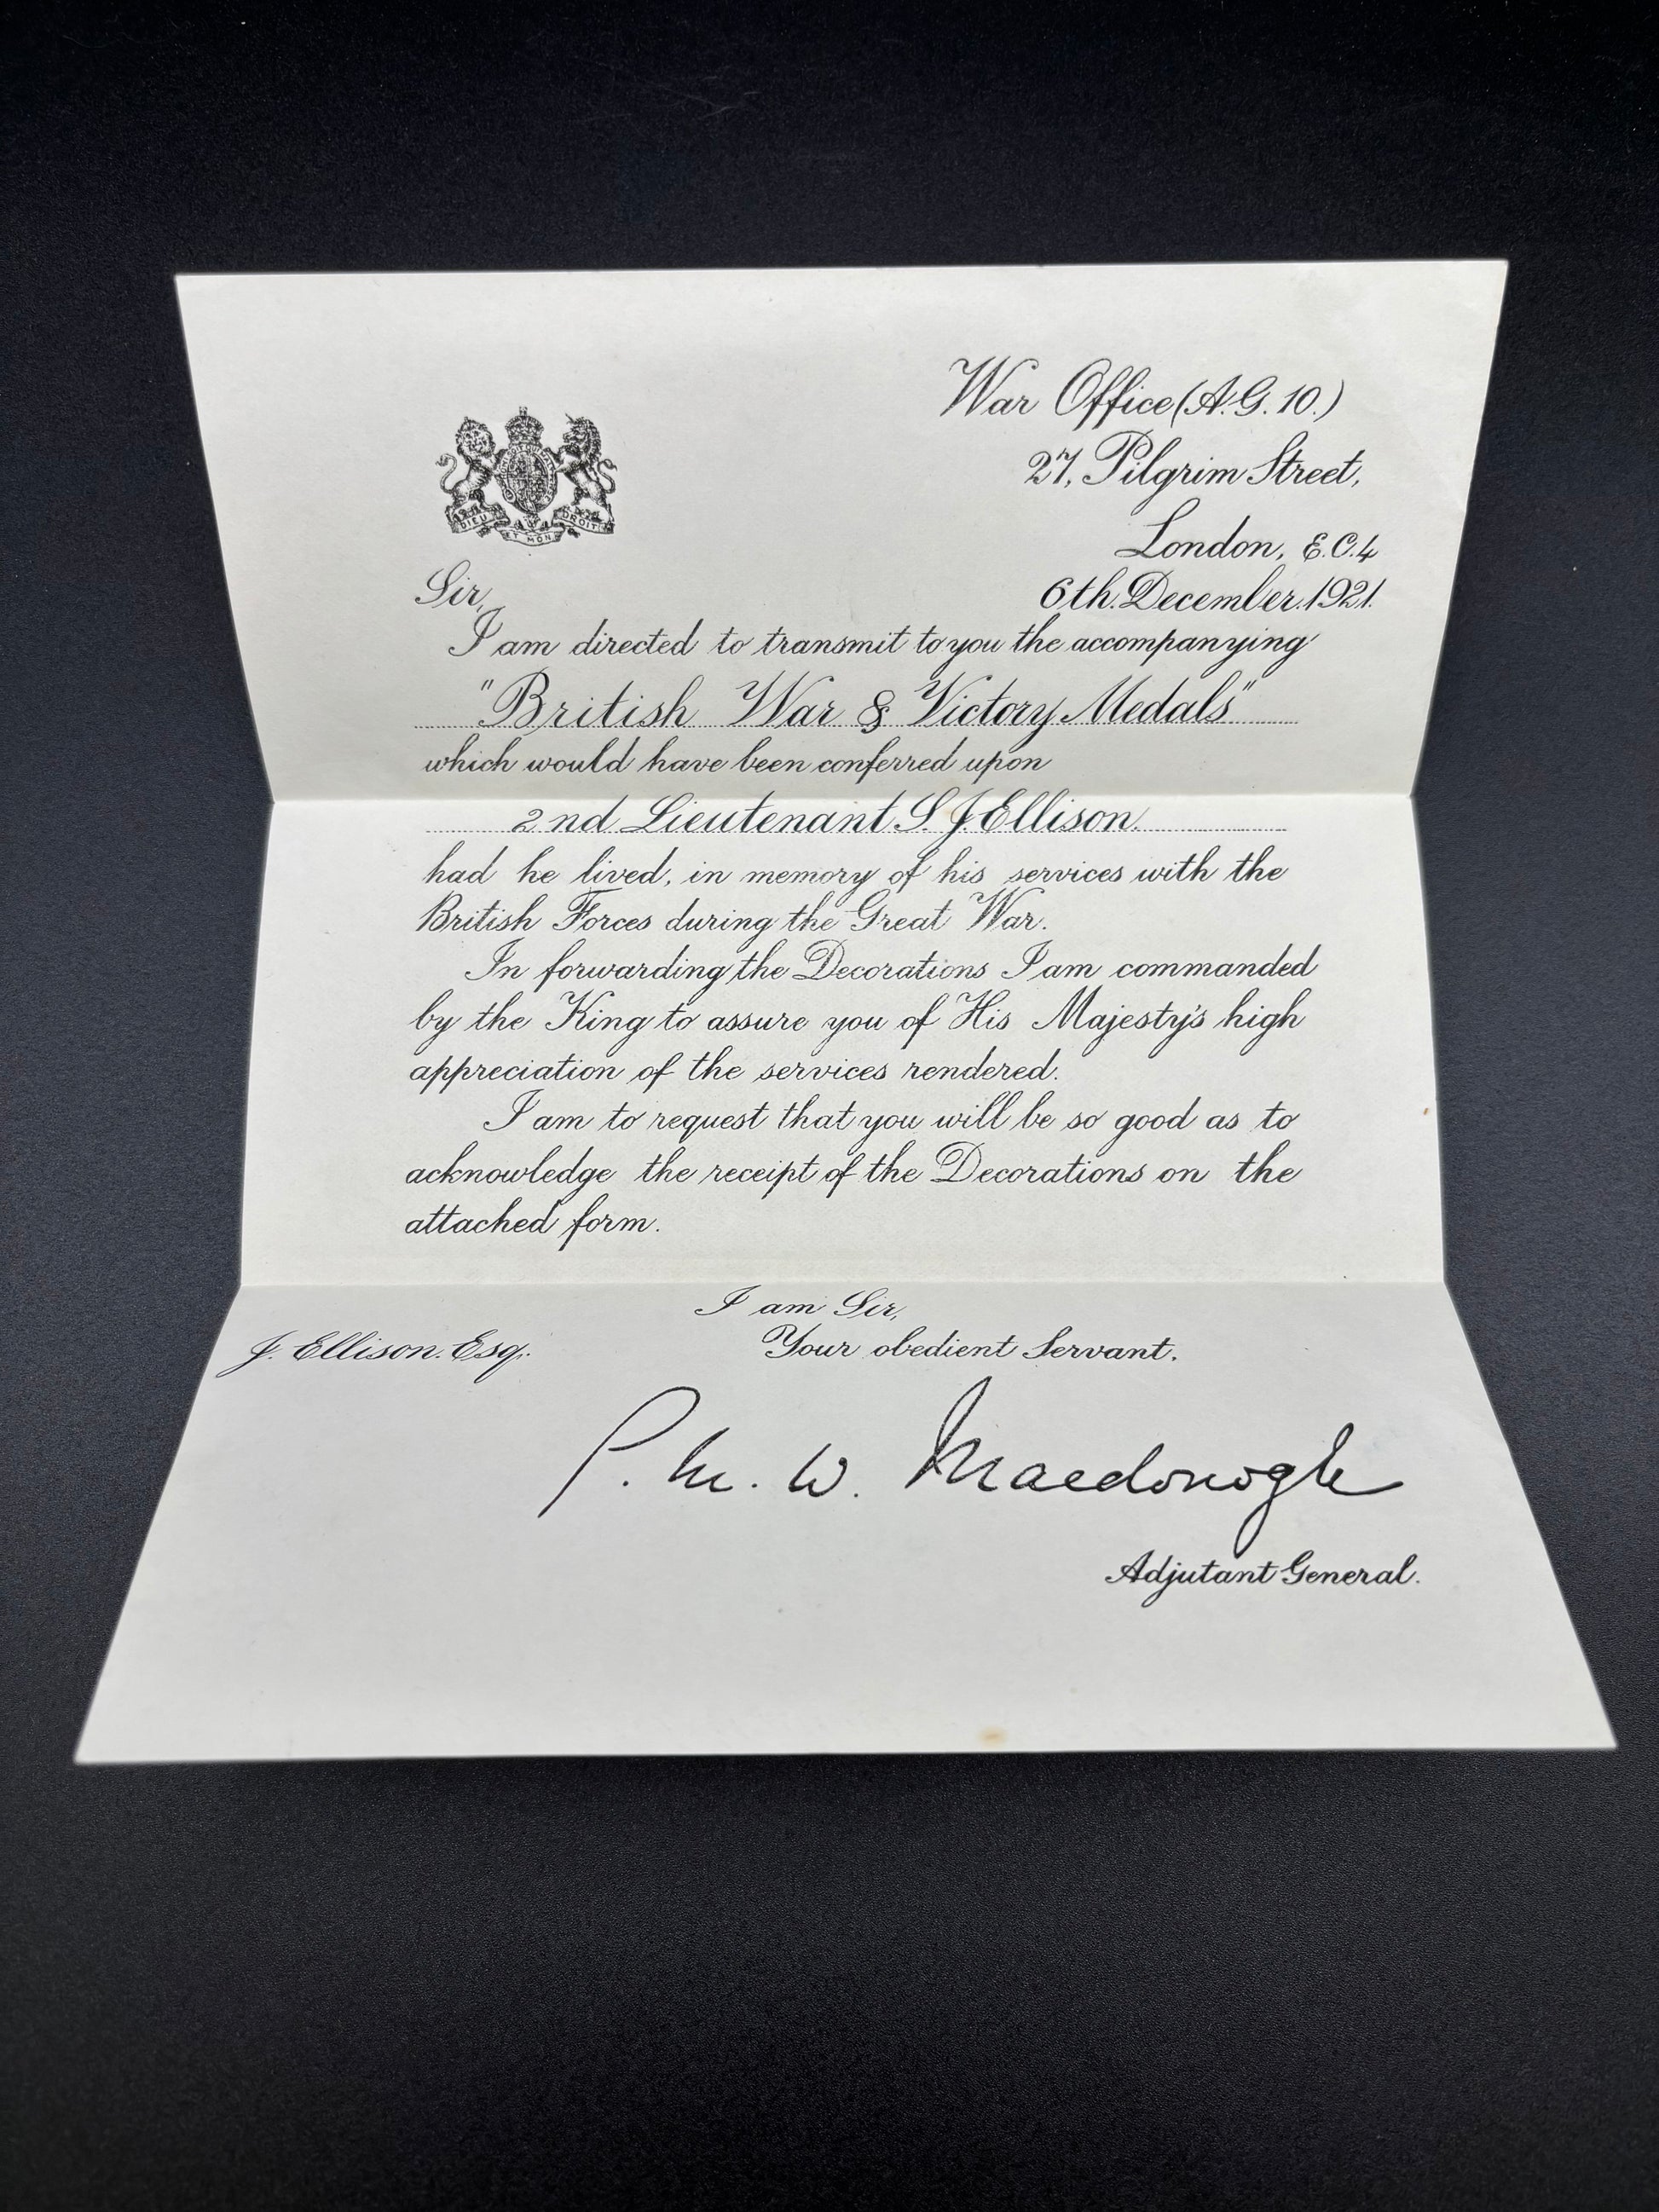 War Office (A.G. 10.)
27, Pilgrim Street,
London, E.C.4
6th. December. 1921.
DIEU ET MON DROIT
Sir,
I am directed to transmit to you the accompanying
"British War & Victory Medals"
which would have been conferred upon
2nd Lieutenant S. J. Ellison.
had he lived, in memory of his services with the
British Forces during the Great War.
In forwarding the Decorations I am commanded
by the King to assure you of His Majesty's high
appreciation of the services rendered.
I am to request that you will be so good as to
acknowledge the receipt of the Decorations on the
attached form.
I am Sir,
J. Ellison. Esq.
Your obedient Servant.
P. M. W. Macdonogh
Adjutant General.